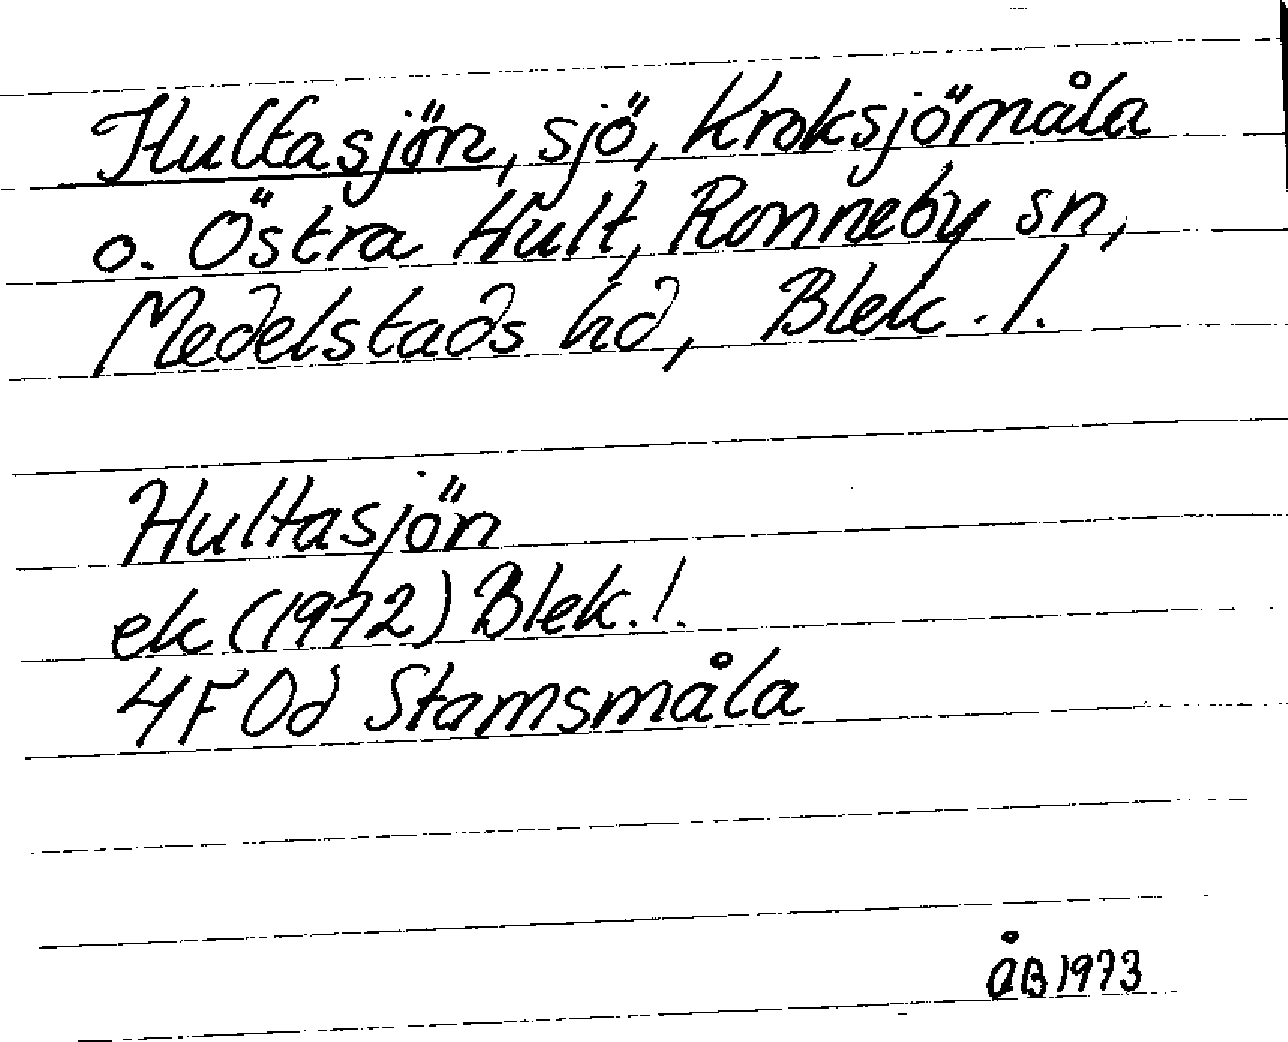 Hultasjön, sjö, Kroksjömåla
o. Östra Hult, Ronneby sn,
Medelstads hd, Blek. l.
Hultasjön
ek (1972) Blek. l.
4F Od Stamsmåla
ÅB 1973